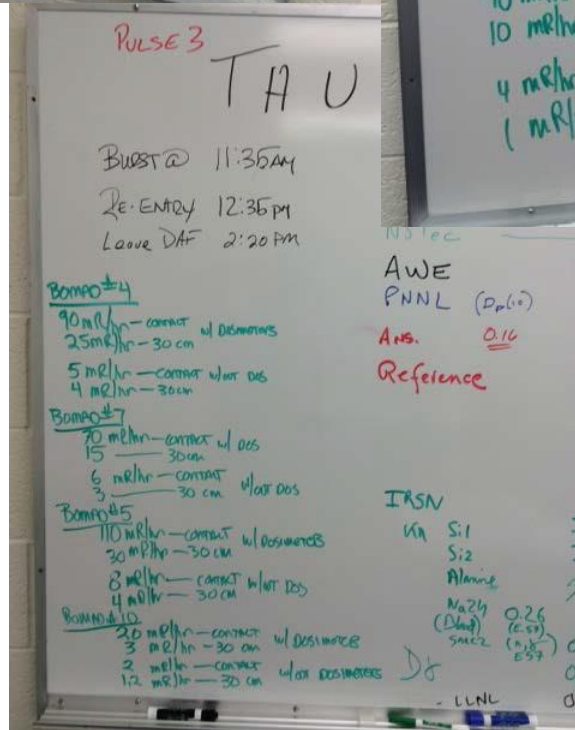 PULSE 3
THU
BURST @ 11:35AM
RE-ENTRY 12:35 PM
Leave DAF 2:20 PM
BOMAD #4
90 mR/hr — CONTACT w/ DOSIMETERS
25 mR/hr — 30 cm
5 mR/hr — CONTACT w/out DOS
4 mR/hr — 30 cm
BOMAD #7
70 mR/hr — CONTACT w/ DOS
15 — 30 cm
6 mR/hr — CONTACT w/out DOS
3 — 30 cm
BOMAD #5
110 mR/hr — CONTACT w/ DOSIMETERS
30 mR/hr — 30 cm
8 mR/hr — CONTACT w/out DOS
4 mR/hr — 30 cm
BOMAD #10
20 mR/hr — CONTACT w/ DOSIMETER
3 mR/hr — 30 cm
2 mR/hr — CONTACT w/out DOSIMETERS
1.2 mR/hr — 30 cm
10 mR/hr
4 mR/hr
1 mR/
AWE
PNNL (Dp(10)
Ans. 0.16
Reference
IRSN
Si1
Si2
Alanine
Na24 0.26
(Blood)
- LLNL